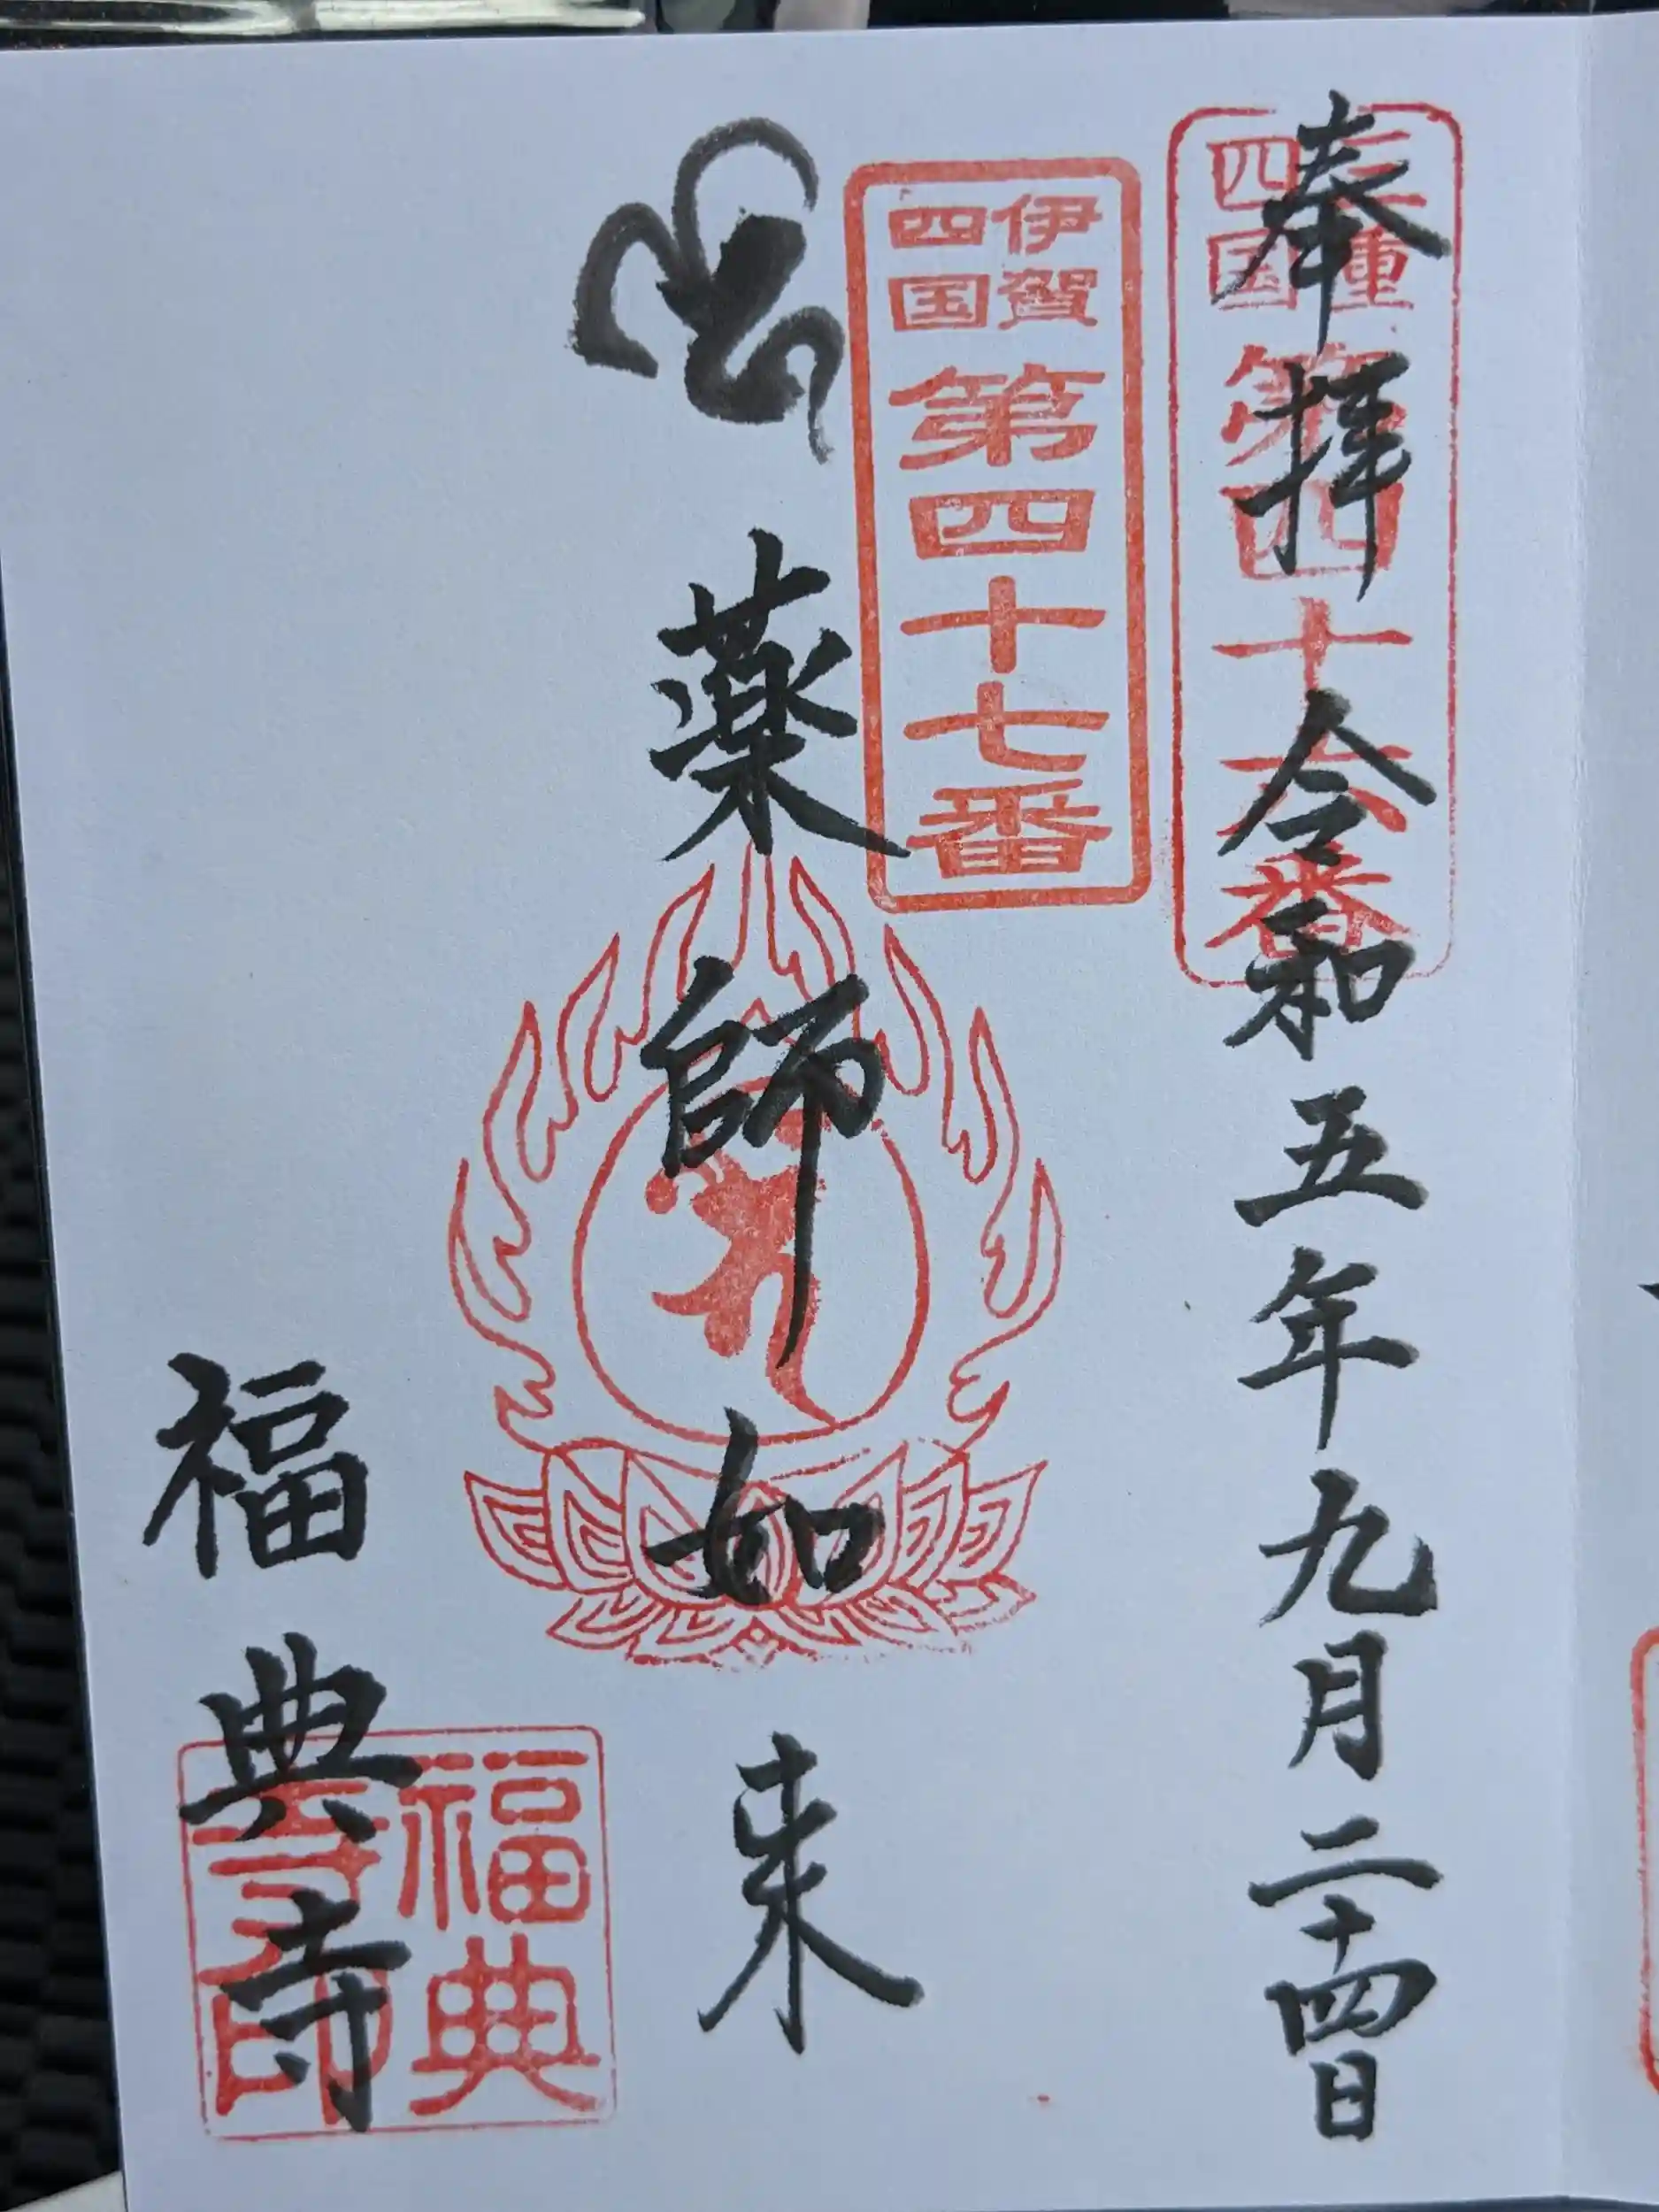 奉拝
令和五年九月二十四日
三重
四国
第四十六番
伊賀
四国
第四十七番
薬師如来
福典寺
福典
寺印